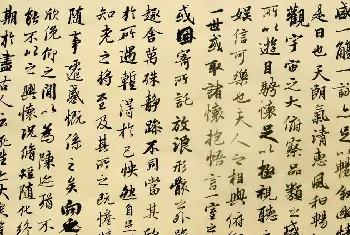 盛一觴一詠亦足以暢敘
是日也天朗氣清惠風和暢
觀宇宙之大俯察品類之盛
所以遊目騁懷足以極視聽之
娛信可樂也夫人之相與俯仰
一世或取諸懷抱悟言一室之
或因寄所託放浪形骸之外雖
趣舍萬殊靜躁不同當其欣
於所遇暫得於己快然自足
知老之將至及其所之既惓情
隨事遷感慨係之矣向之
欣俛仰之間以為陳迹猶不
能不以之興懷況脩短隨化終
期於盡古人云死生亦大矣